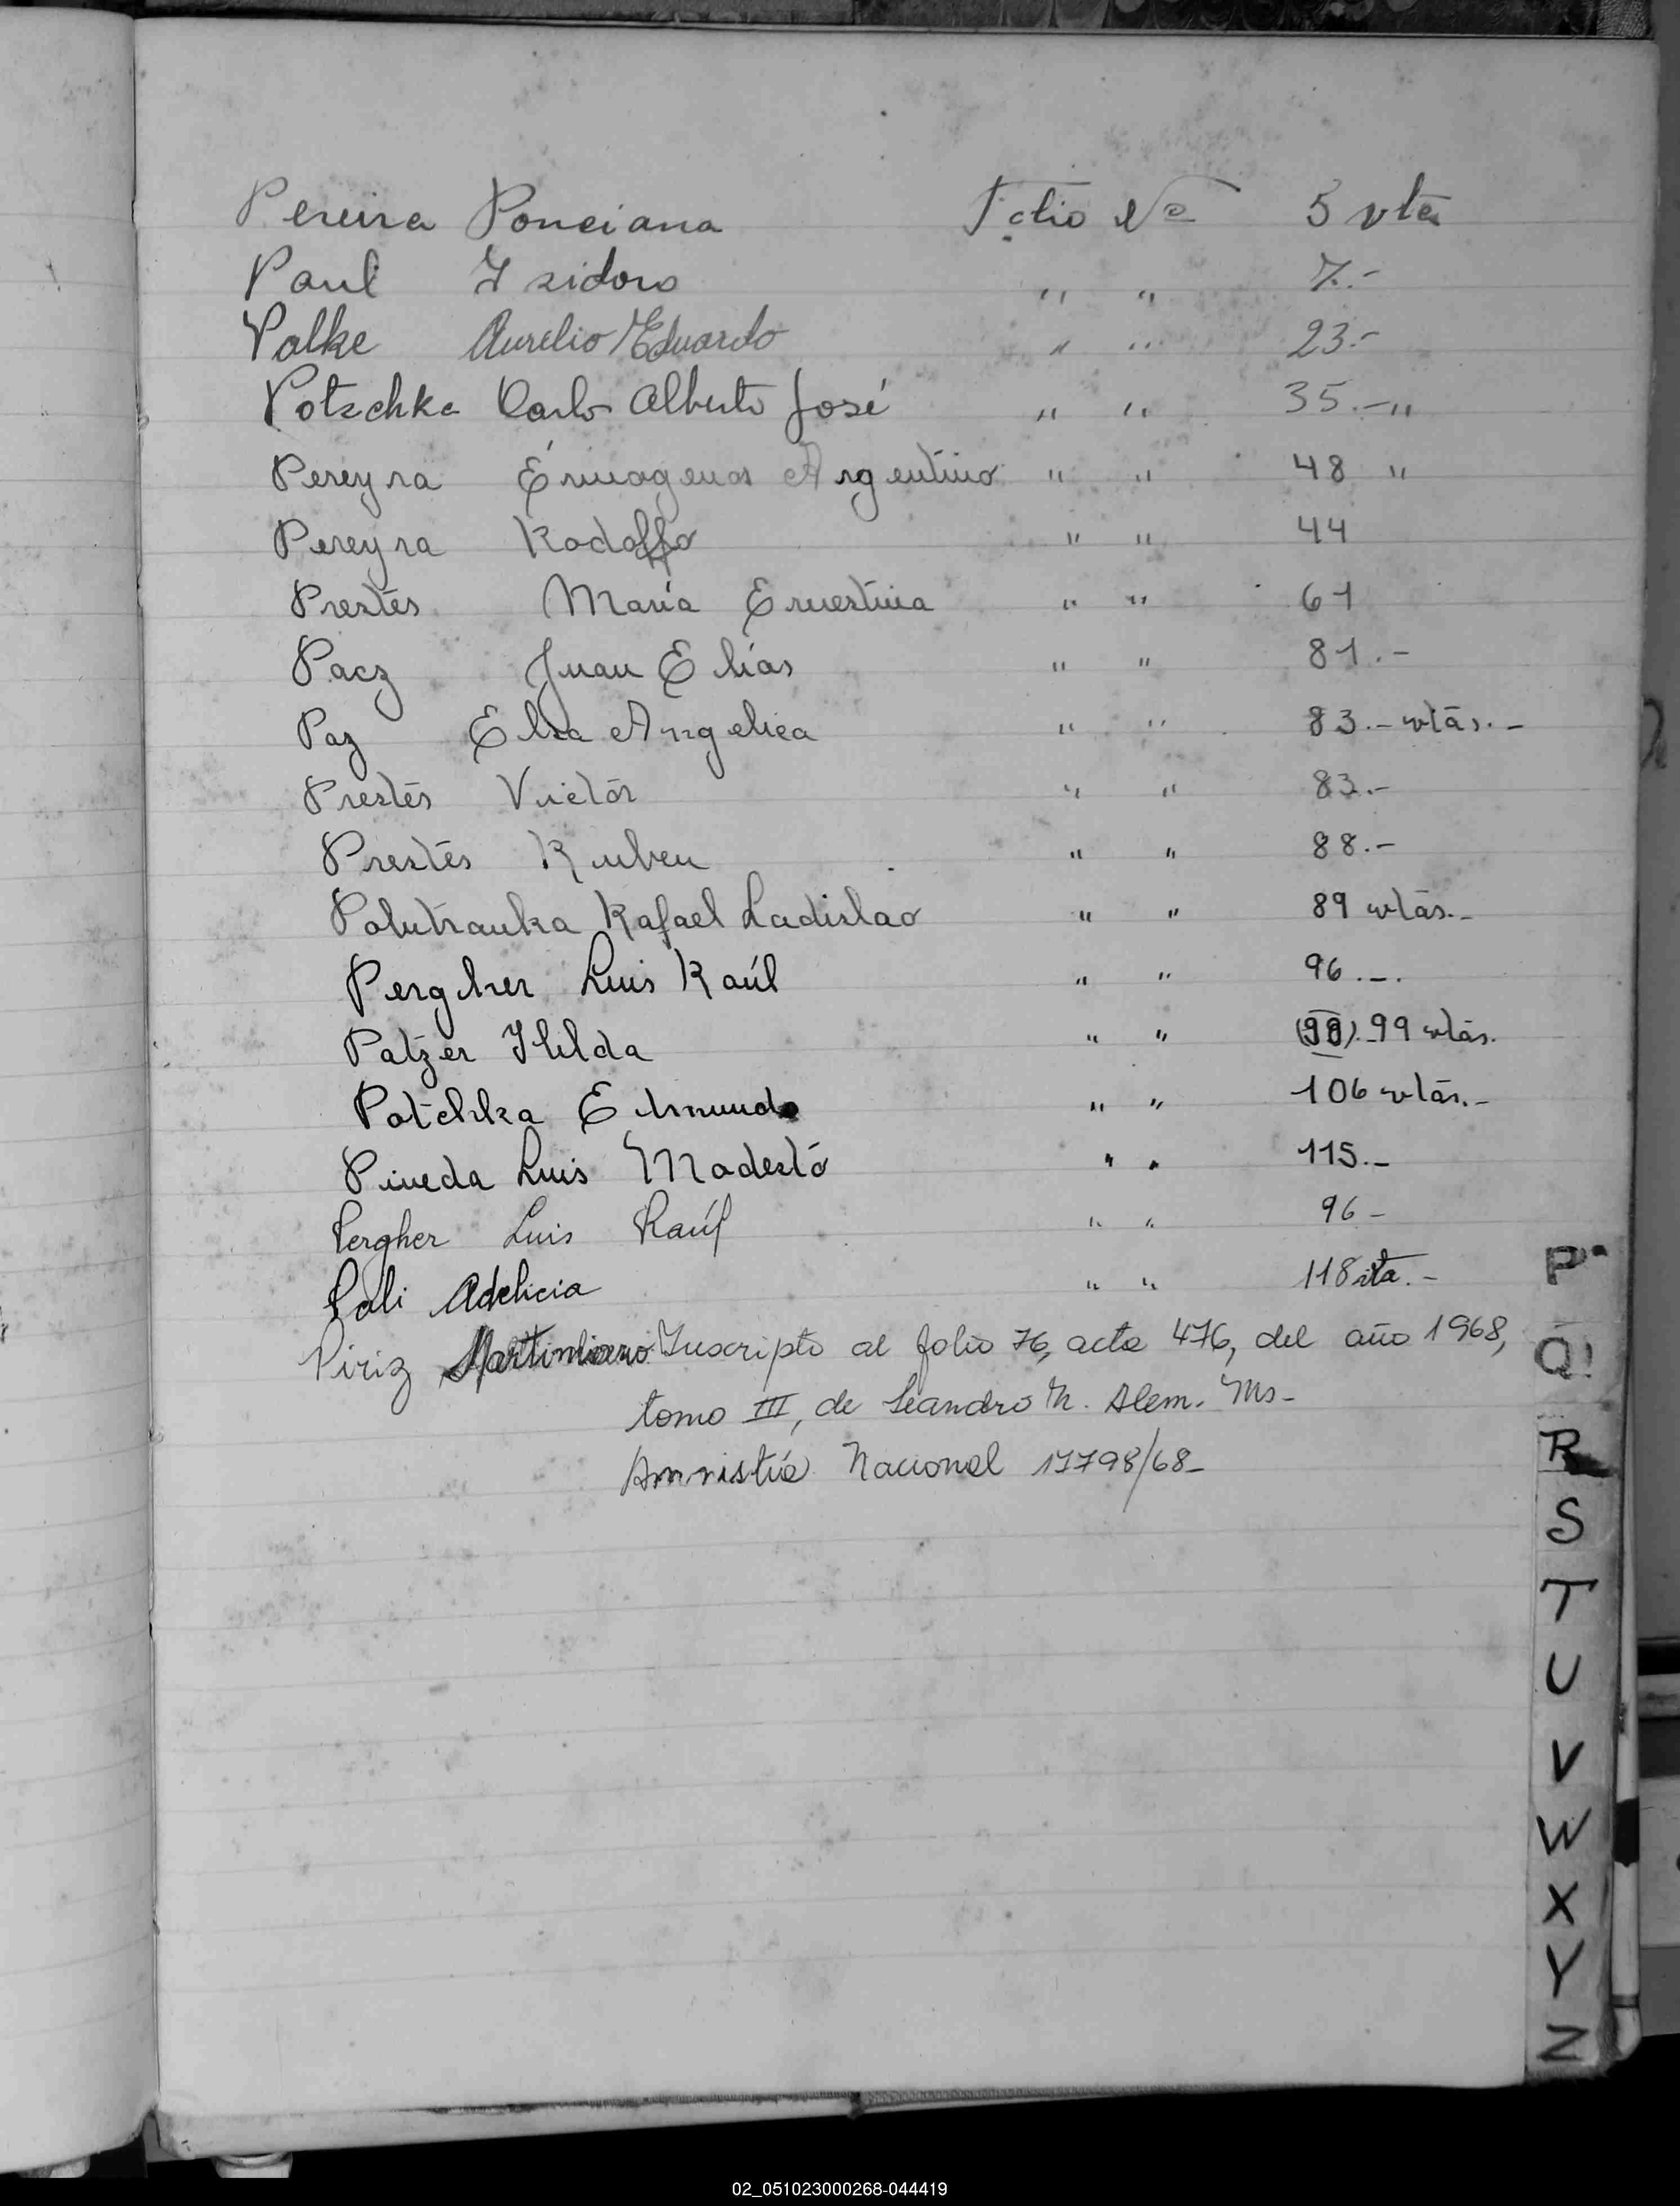 Pereira Ponciana Folio Nº 5 vta
Paul Isidoro " " 7.-
Palke Aurelio Eduardo " " 23.-
Potschka Carlos Alberto José " " 35.- "
Pereyra Ermogenes Argentino " " 48 "
Pereyra Rodolfo " " 44
Prestes María Ernestina " " 61
Pacz Juan Elías " " 81.-
Paz Elsa Angelica " " 83.- vtas.-
Prestes Victor " " 83.-
Prestes Ruben " " 88.-
Polutranka Rafael Ladislao " " 89 vtas.-
Pergher Luis Raúl " " 96.-.
Patzer Hilda " " (98).-99 vtas.
Potchka Edmundo " " 106 vtas.-
Pineda Luis Modesto " " 115.-
Pergher Luis Raúl " " 96-
Pali Adelicia " " 118 vta.-
Piriz Martimiano. Inscripto al folio 76, acta 476, del año 1968,
tomo III, de Leandro N. Alem. Ms-
Amnistía Nacional 17798/68-
P
Q
R
S
T
U
V
W
X
Y
Z
02_051023000268-044419